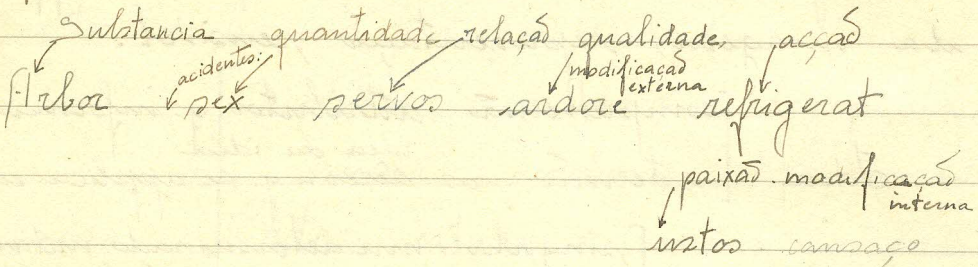 Substancia quantidade relação qualidade, acção
acidentes: modificação
externa
Arbor sex servos ardore refrigerat
paixão. modificação
interna
ustos cansaço